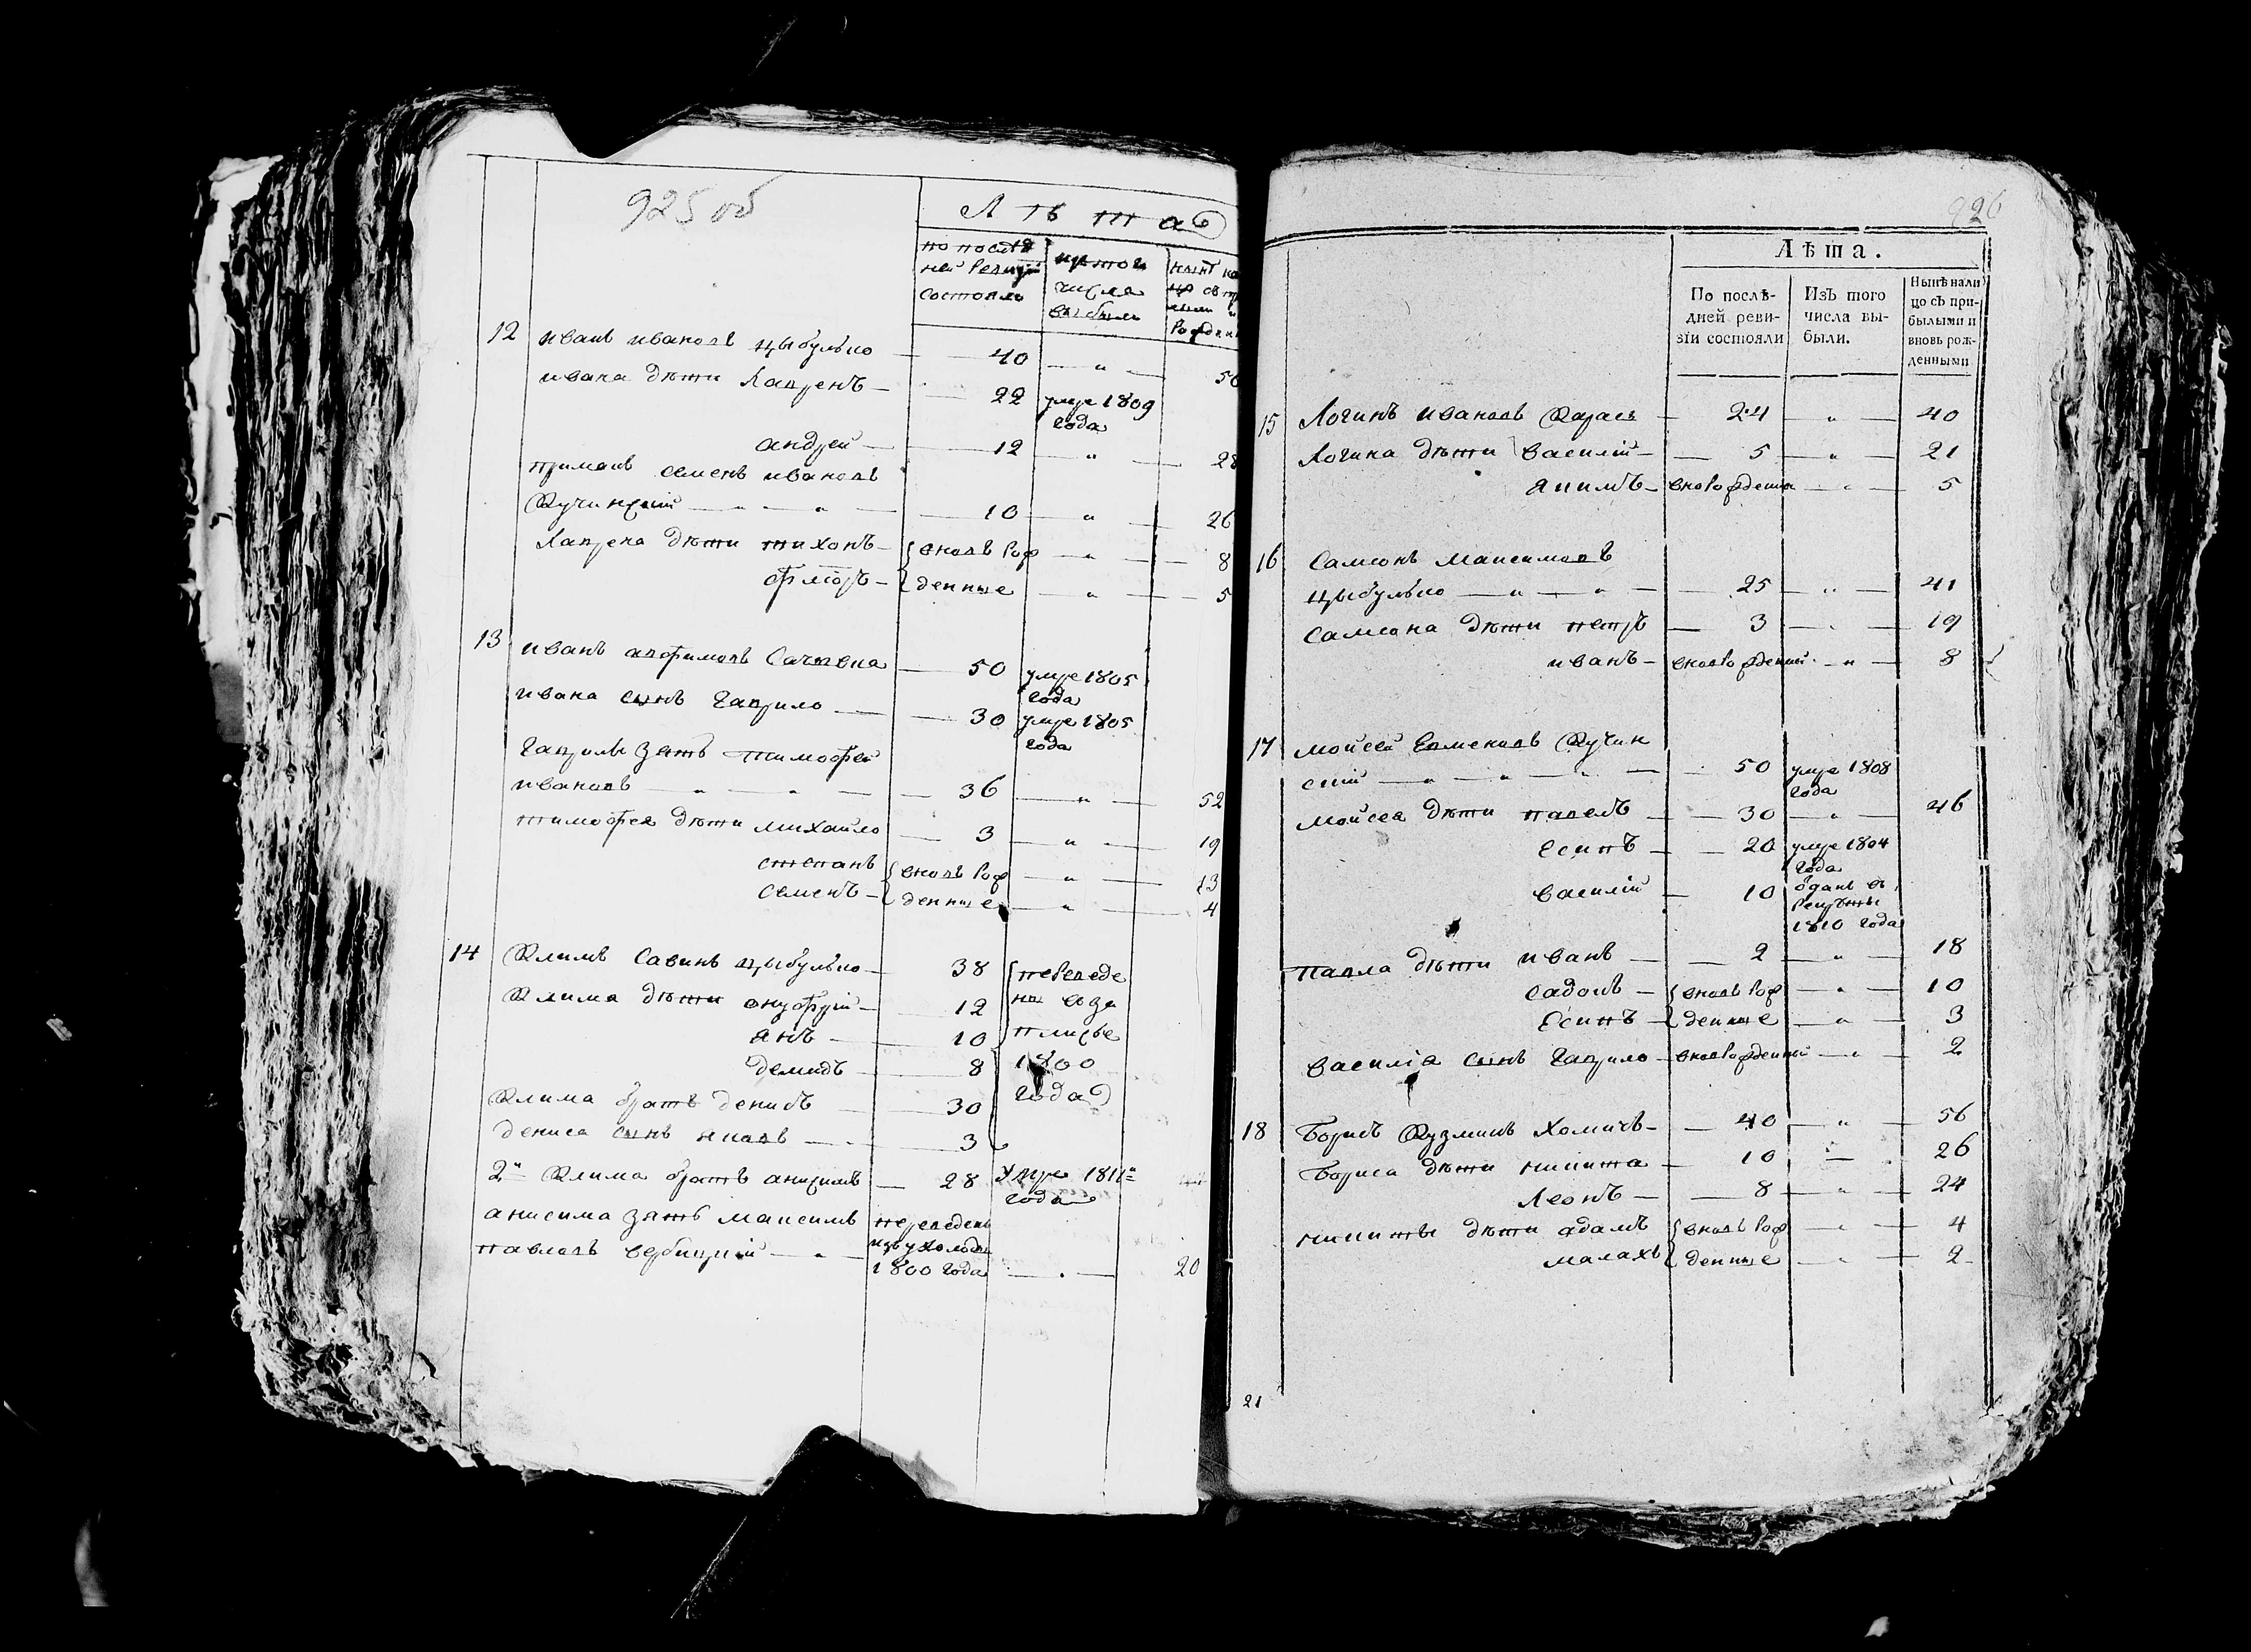 925 об
Лѣта
по послѣд
ней ревизіи
состояли
ис того
числа
выбыли
нынѣ на
цо съ пр
рожден
12 иванъ ивановъ цыбулько — 40 — „ — 56
ивана дѣти лавренъ — 22 умре 1809
года
андрей — 12 — „ — 28
примакъ семенъ ивановъ
Кучинский — „ — „ — 10 — „ — 26
лаврена дѣти тихонъ — вновь рож — „ — 8
фліоръ — денные — „ — 5
13 иванъ авфимовъ — 50 умре 1805
года
ивана сынъ гаврило — 30 умре 1805
года
гаврилы зять тимофей
ивановъ — „ — „ — 36 — „ — 52
тимофея дѣти михайло — 3 — „ — 19
степанъ вновь рож — „ — 13
семенъ — денные — „ — 4
14 Климъ савинъ цыбулько — 38 переведе
Клима дѣти онуфрій — 12 ны
янъ — 10
демидъ — 8 1800
года
Клима братъ денисъ — 30
дениса сынъ яковъ — 3
2й Клима братъ анисимъ — 28 умре 1811го
года
анисима зять максимъ переведенъ
павловъ вербицкій — „ — изъ
1800 года — „ — 20
926
Лѣта.
По послѣ-
дней реви-
зіи состояли
Изъ того
числа вы-
были.
Нынѣ нали
цо съ при-
былыми и
вновь рож-
денными
15 Логинъ ивановъ Карась — 24 — „ — 40
Логина дѣти василій — 5 — „ — 21
якимъ — вноврождены — „ — 5
16 Самсонъ максимовъ
цыбулько — „ — „ — 25 — „ — 41
самсона дѣти петръ — 3 — „ — 19
иванъ — вноврожденный — „ — 8
17 мойсей Кучин
скій — „ — „ — „ — 50 умре 1808
года
мойсея дѣти павелъ — 30 — „ — 46
есипъ — 20 умре 1804
года
василій — 10 отданъ въ
рекруты
1810 года
павла дѣти иванъ — 2 — „ — 18
садокъ — вновь рож — „ — 10
есипъ — денные — „ — 3
василія сынъ гаврило — вноврожденный — „ — 2
18 Борисъ Кузминъ хомичъ — 40 — „ — 56
Бориса дѣти никита — 10 — „ — 26
леонъ — 8 — „ — 24
никиты дѣти адамъ вновь рож — „ — 4
малахъ денные — „ — 2
21